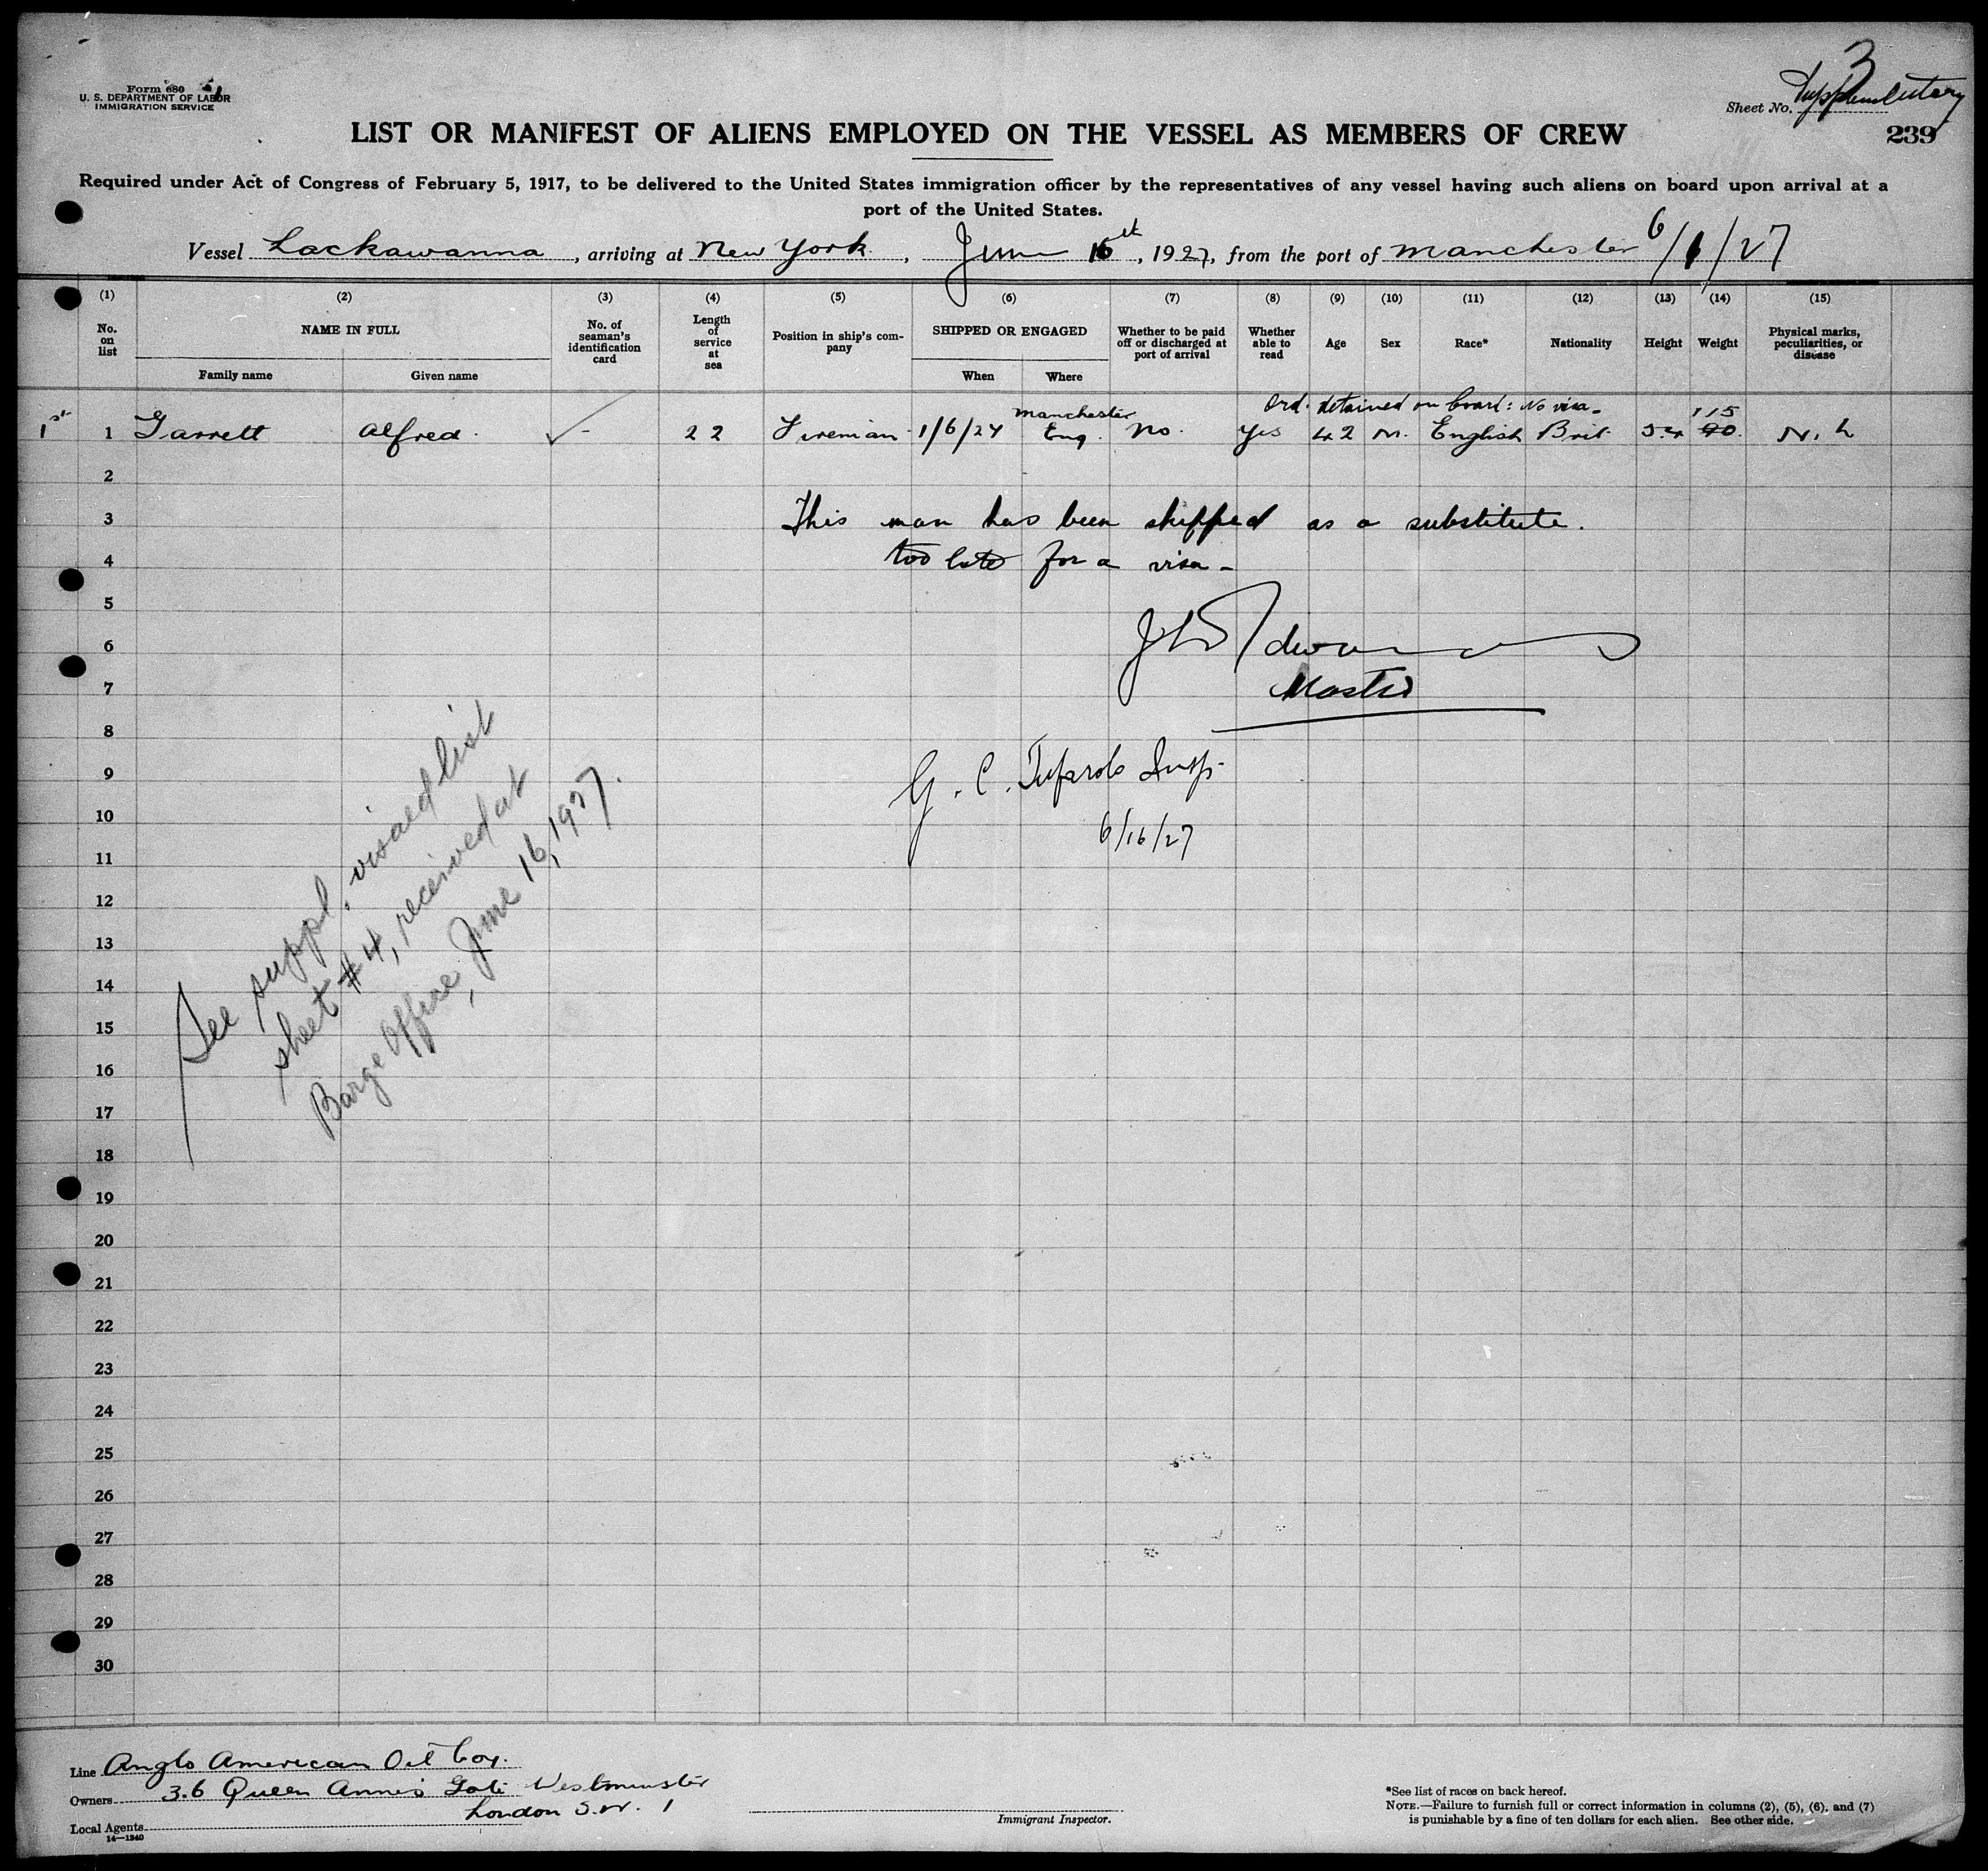 3
Form 680
U. S. DEPARTMENT OF LABOR
IMMIGRATION SERVICE
Sheet No. Supplementary
LIST OR MANIFEST OF ALIENS EMPLOYED ON THE VESSEL AS MEMBERS OF CREW
239
Required under Act of Congress of February 5, 1917, to be delivered to the United States immigration officer by the representatives of any vessel having such aliens on board upon arrival at a
port of the United States.
Vessel Lackawanna, arriving at New York, June 16th, 1927, from the port of Manchester 6/1/27
(1) (2) (3) (4) (5) (6) (7) (8) (9) (10) (11) (12) (13) (14) (15)
No. on list NAME IN FULL No. of seaman's identification card Length of service at sea Position in ship's company SHIPPED OR ENGAGED Whether to be paid off or discharged at port of arrival Whether able to read Age Sex Race* Nationality Height Weight Physical marks, peculiarities, or disease
Family name Given name When Where
Manchester Ord. detained on board: No visa- 115
1st 1 Garrett Alfred. - 22 Fireman 1/6/27 Eng. No. Yes 42 M. English Brit. 5.4 90. N. L
2
3 This man has been shipped as a substitute.
4 too late for a visa-
5
6 Edwards
7 Master
8
9 G. C. Insp.
10 6/16/27
11
12
13
14
15
16
17
18
19
20
21
22
23
24
25
26
27
28
29
30
See suppl. visaed list
sheet #4, received at
Barge Office, June 16, 1927.
Line Anglo American Oil Coy.
Owners 36 Queen Anne's Gate Westminster
London S.W. 1
Local Agents
14—1240
Immigrant Inspector.
*See list of races on back hereof.
NOTE.—Failure to furnish full or correct information in columns (2), (5), (6), and (7)
is punishable by a fine of ten dollars for each alien. See other side.